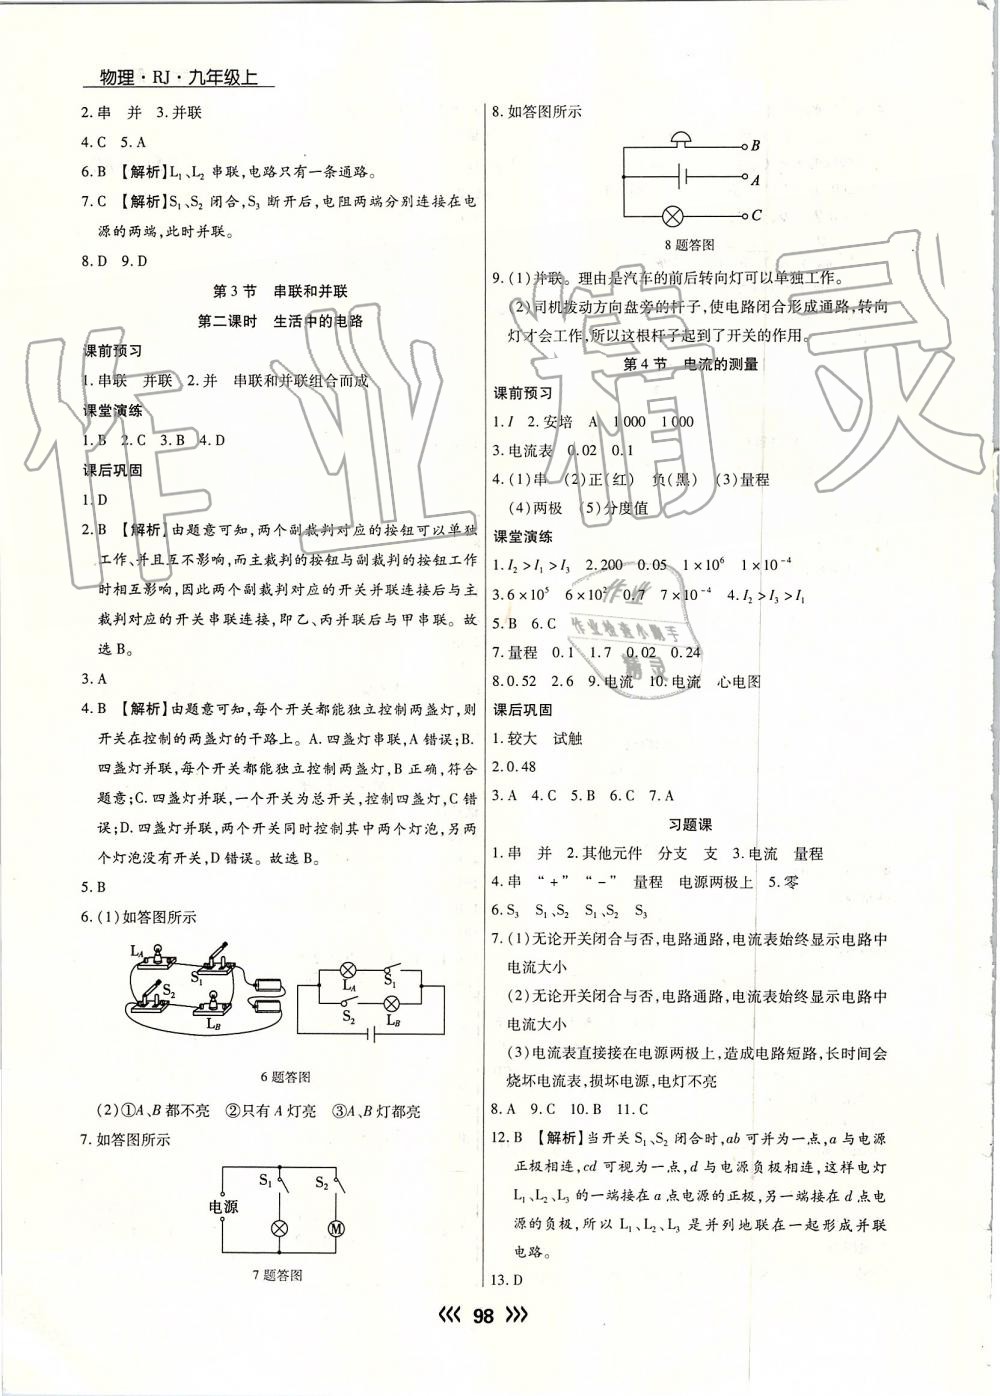 物理·RJ·九年级上
2.串 并 3.并联
4.C 5.A
6.B 【解析】L₁、L₂ 串联,电路只有一条通路。
7.C 【解析】S₁、S₂ 闭合,S₃ 断开后,电阻两端分别连接在电
源的两端,此时并联。
8.D 9.D
第3节 串联和并联
第二课时 生活中的电路
课前预习
1.串联 并联 2.并 串联和并联组合而成
课堂演练
1.B 2.C 3.B 4.D
课后巩固
1.D
2.B 【解析】由题意可知,两个副裁判对应的按钮可以单独
工作、并且互不影响,而主裁判的按钮与副裁判的按钮工作
时相互影响,因此两个副裁判对应的开关并联连接后与主
裁判对应的开关串联连接,即乙、丙并联后与甲串联。故
选B。
3.A
4.B 【解析】由题意可知,每个开关都能独立控制两盏灯,则
开关在控制的两盏灯的干路上。A.四盏灯串联,A错误;B.
四盏灯并联,每个开关都能独立控制两盏灯,B正确,符合
题意;C.四盏灯并联,一个开关为总开关,控制四盏灯,C错
误;D.四盏灯并联,两个开关同时控制其中两个灯泡,另两
个灯泡没有开关,D错误。故选B。
5.B
6.(1)如答图所示
L_A S₁ S₂ L_B
L_A S₁ S₂ L_B
6题答图
(2)①A、B都不亮 ②只有A灯亮 ③A、B灯都亮
7.如答图所示
电源 S₁ S₂ M
7题答图
8.如答图所示
B
A
C
8题答图
9.(1)并联。理由是汽车的前后转向灯可以单独工作。
(2)司机拨动方向盘旁的杆子,使电路闭合形成通路,转向
灯才会工作,所以这根杆子起到了开关的作用。
第4节 电流的测量
课前预习
1.I 2.安培 A 1 000 1 000
3.电流表 0.02 0.1
4.(1)串 (2)正(红) 负(黑) (3)量程
(4)两极 (5)分度值
课堂演练
1.I₂>I₁>I₃ 2.200 0.05 1×10⁶ 1×10⁻⁴
3.6×10⁵ 6×10² 0.7 7×10⁻⁴ 4.I₂>I₃>I₁
5.B 6.C
7.量程 0.1 1.7 0.02 0.24
8.0.52 2.6 9.电流 10.电流 心电图
课后巩固
1.较大 试触
2.0.48
3.A 4.C 5.B 6.C 7.A
习题课
1.串 并 2.其他元件 分支 支 3.电流 量程
4.串 “+” “-” 量程 电源两极上 5.零
6.S₃ S₁、S₂ S₁、S₂ S₃
7.(1)无论开关闭合与否,电路通路,电流表始终显示电路中
电流大小
(2)无论开关闭合与否,电路通路,电流表始终显示电路中
电流大小
(3)电流表直接接在电源两极上,造成电路短路,长时间会
烧坏电流表,损坏电源,电灯不亮
8.A 9.C 10.B 11.C
12.B 【解析】当开关S₁、S₂ 闭合时,ab可并为一点,a与电源
正极相连,cd可视为一点,d与电源负极相连,这样电灯
L₁、L₂、L₃ 的一端接在a点电源的正极,另一端接在d点电
源的负极,所以L₁、L₂、L₃ 是并列地联在一起形成并联
电路。
13.D
《 98 》
作业精灵
作业
作业检查小助手
精灵